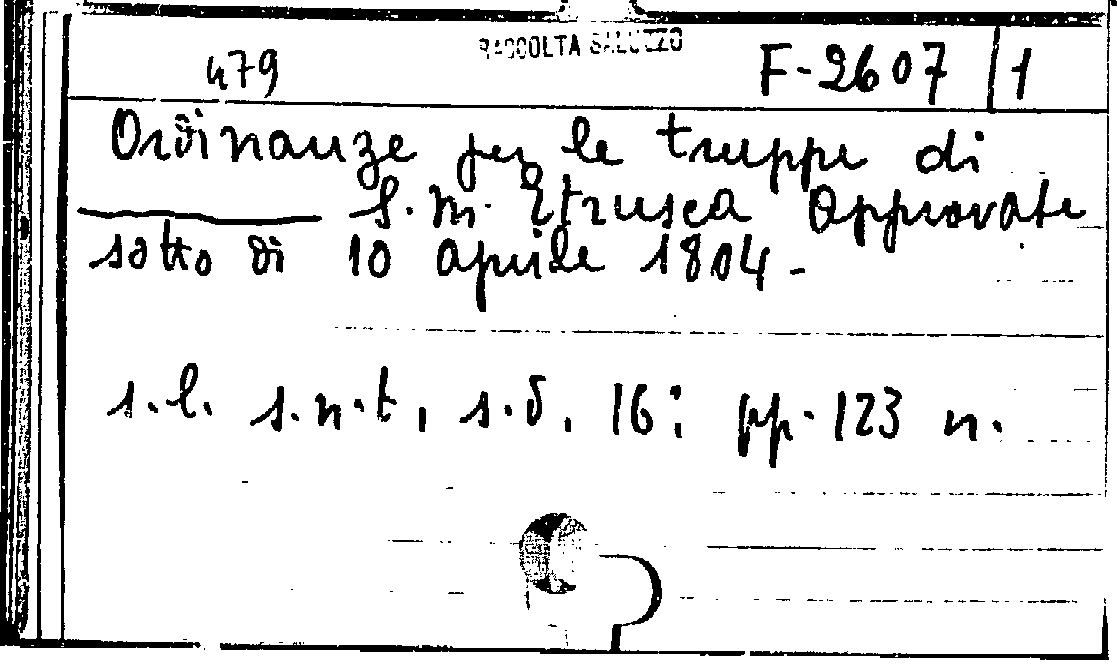 RACCOLTA SALUZZO
479 F-2607 1
Ordinanze per le truppe di
S.M. Etrusca approvate
sotto di 10 aprile 1804.-
s.l. s.n.t, s.d. 16°; pp. 123 n.